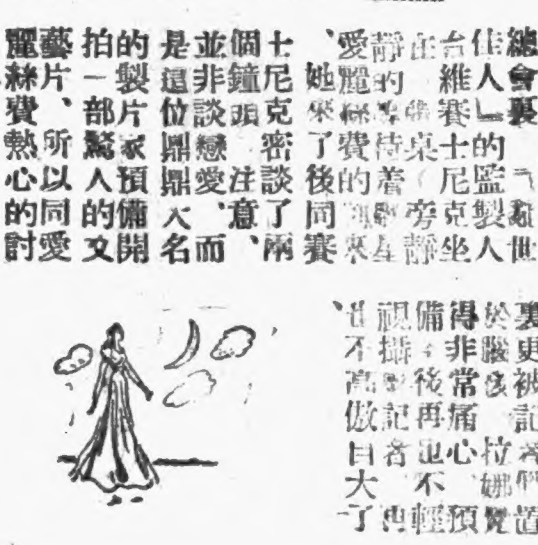 總會裏「亂世
佳人」的監製人
台維賽士尼克坐
在桌旁靜
靜的等待着影星
愛麗絲費的到來
、她來了後同賽
士尼克密談了兩
個鐘頭 注意、
並非談戀愛、而
是這位鼎鼎大名
的製片家預備開
拍一部驚人的文
藝片、所以同愛
麗絲費熱心的討
裏更被記者們置
於腦後 拉娜覺
得非常痛心 預
備後再也不輕
視攝影記者
、也不高傲自大了